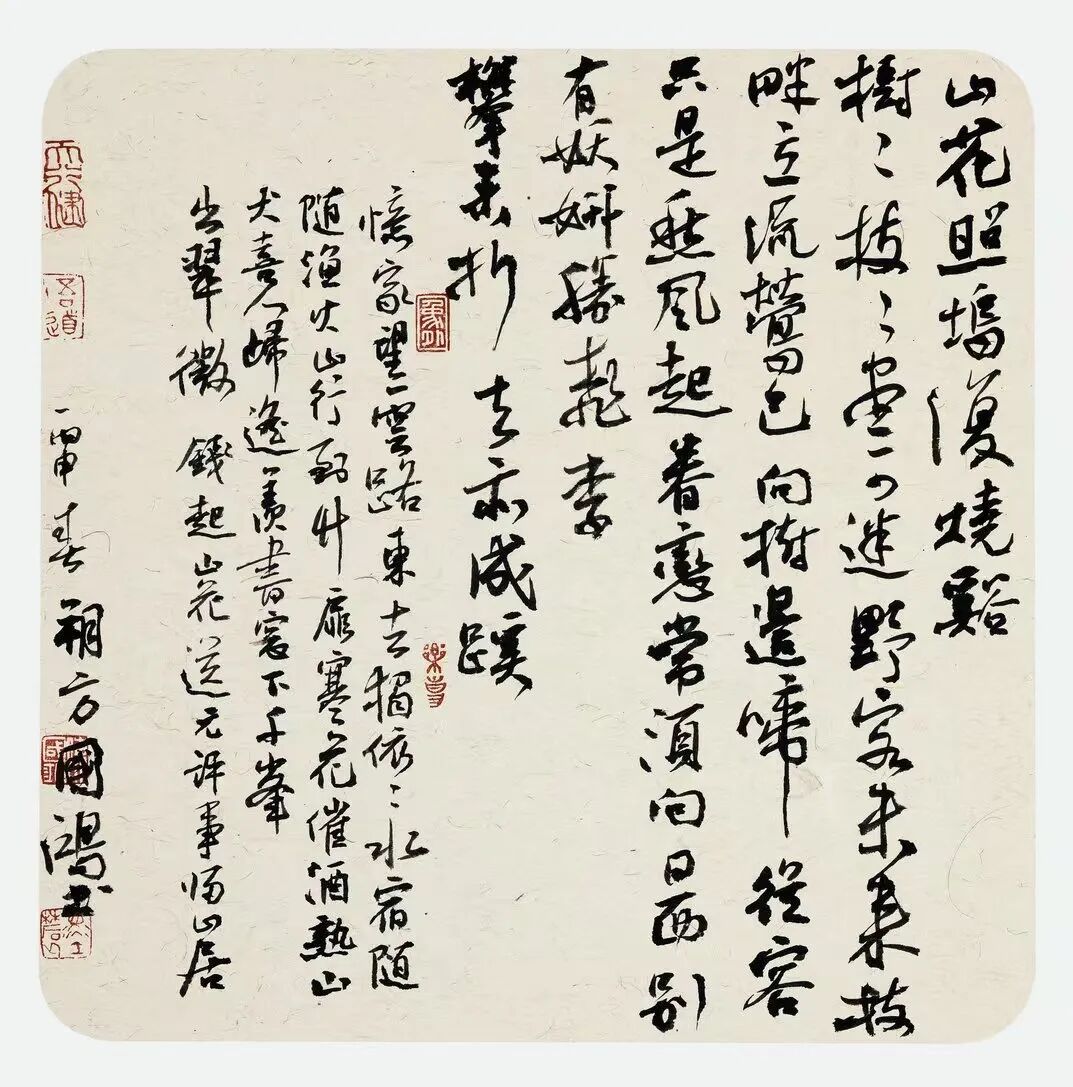 山花照塢復燒谿
樹〻枝〻盡可迷野客未來枝
畔立流鶯已向樹邊啼 從容
只是愁風起眷戀常須向日西別
有妖妍勝桃李
攀來折去亦成蹊
憶家望雲路東去獨依〻水宿随
随漁火山行到竹扉寒花催酒熟山
犬喜人歸遙羨書窓下千峯
出翠微 錢起山花送元評事歸山居
丙申春朔方國鴻書
天行健